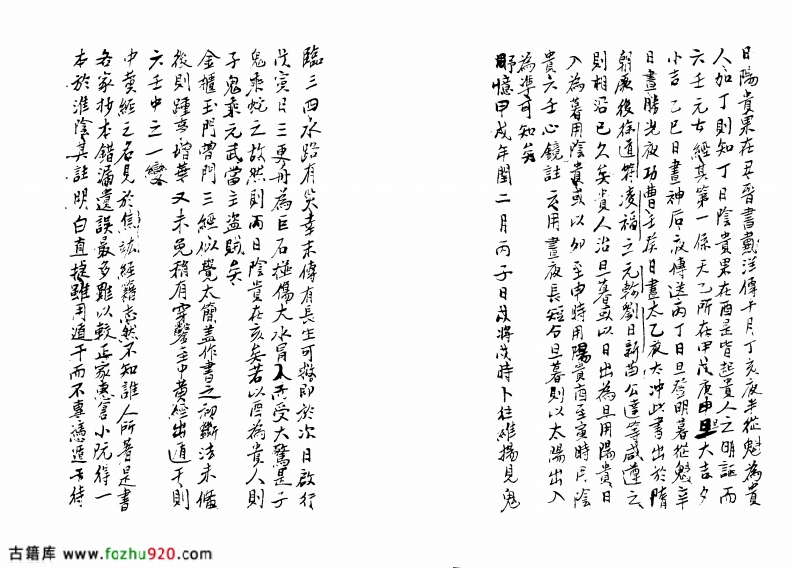 日陽貴果在丑晉書戴洋傳十月丁亥夜半從魁為貴
人加丁則知丁日陰貴果在酉是皆起貴人之明証而
六壬元古經其第一條天乙所在甲戊庚申旦大吉夕
小吉乙巳日晝神后夜傳送丙丁日旦登明暮從魁辛
日晝勝光夜功曹壬癸日晝太乙夜太冲此書出於隋
朝厥後徐道符凌福之元軫劉日新苗公達等咸遵之
則相沿已久矣貴人治旦暮或以日出為旦用陽貴日
入為暮用陰貴或以卯至申時用陽貴酉至寅時用陰
貴六壬心鏡註云用晝夜長短分旦暮則以太陽出入
為準可知矣
憶甲戌年閏二月丙子日戌將戌時卜往維揚見鬼
臨三四水路有災幸末傳有長生可救即於次日啟行
戊寅日三更舟為巨石碰傷大水冒入而受大驚是子
鬼乘蛇之故然則丙日陰貴在亥矣若以酉為貴人則
子鬼乘元武當主盜賊矣
金櫃玉門曹門三經似覺太簡蓋作書之初斷法未備
後則踵事增華又未免稍有穿鑿主中黃經出遁干則
六壬中之一變
中黃經之名見於焦竑經籍志然不知誰人所著是書
各家抄本錯漏遺誤最多雖以較正家惠言小阮得一
本於淮陰其註明白直捷雖用遁干而不專憑遁干待